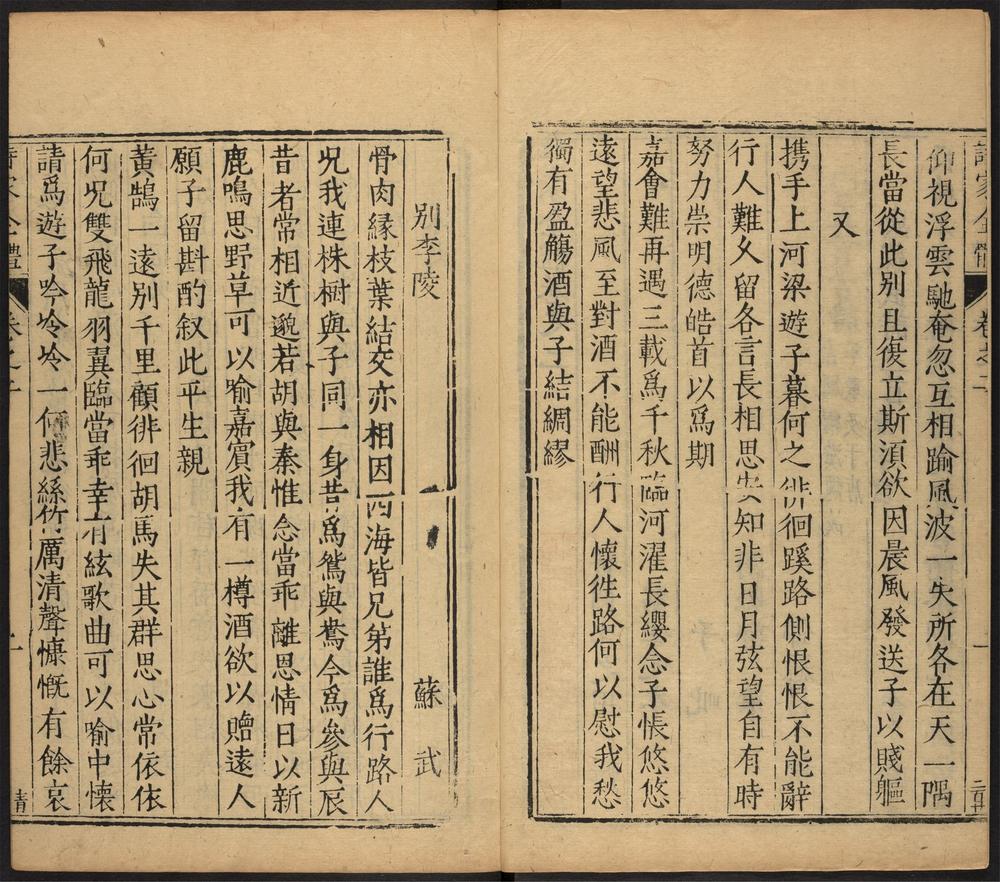 詩家全體 卷之二
仰視浮雲馳奄忽互相踰風波一失所各在天一隅
長當從此別且復立斯湏欲因晨風發送子以賤軀
又
携手上河梁遊子暮何之徘徊蹊路側恨恨不能辭
行人難久留各言長相思安知非日月弦望自有時
努力崇明德皓首以爲期
嘉會難再遇三載爲千秋臨河濯長纓念子悵悠悠
遠望悲風至對酒不能酬行人懷徃路何以慰我愁
獨有盈觴酒與子結綢繆
別李陵 蘇武
骨肉縁枝葉結交亦相因四海皆兄弟誰爲行路人
况我連株樹與子同一身昔爲鴛與鴦今爲參與辰
昔者常相近邈若胡與秦惟念當乖離恩情日以新
鹿鳴思野草可以喻嘉賓我有一樽酒欲以贈遠人
願子留斟酌叙此平生親
黃鵠一遠別千里顧徘徊胡馬失其群思心常依依
何况雙飛龍羽翼臨當乖幸有絃歌曲可以喻中懷
請爲遊子吟泠泠一何悲絲竹厲清聲慷慨有餘哀